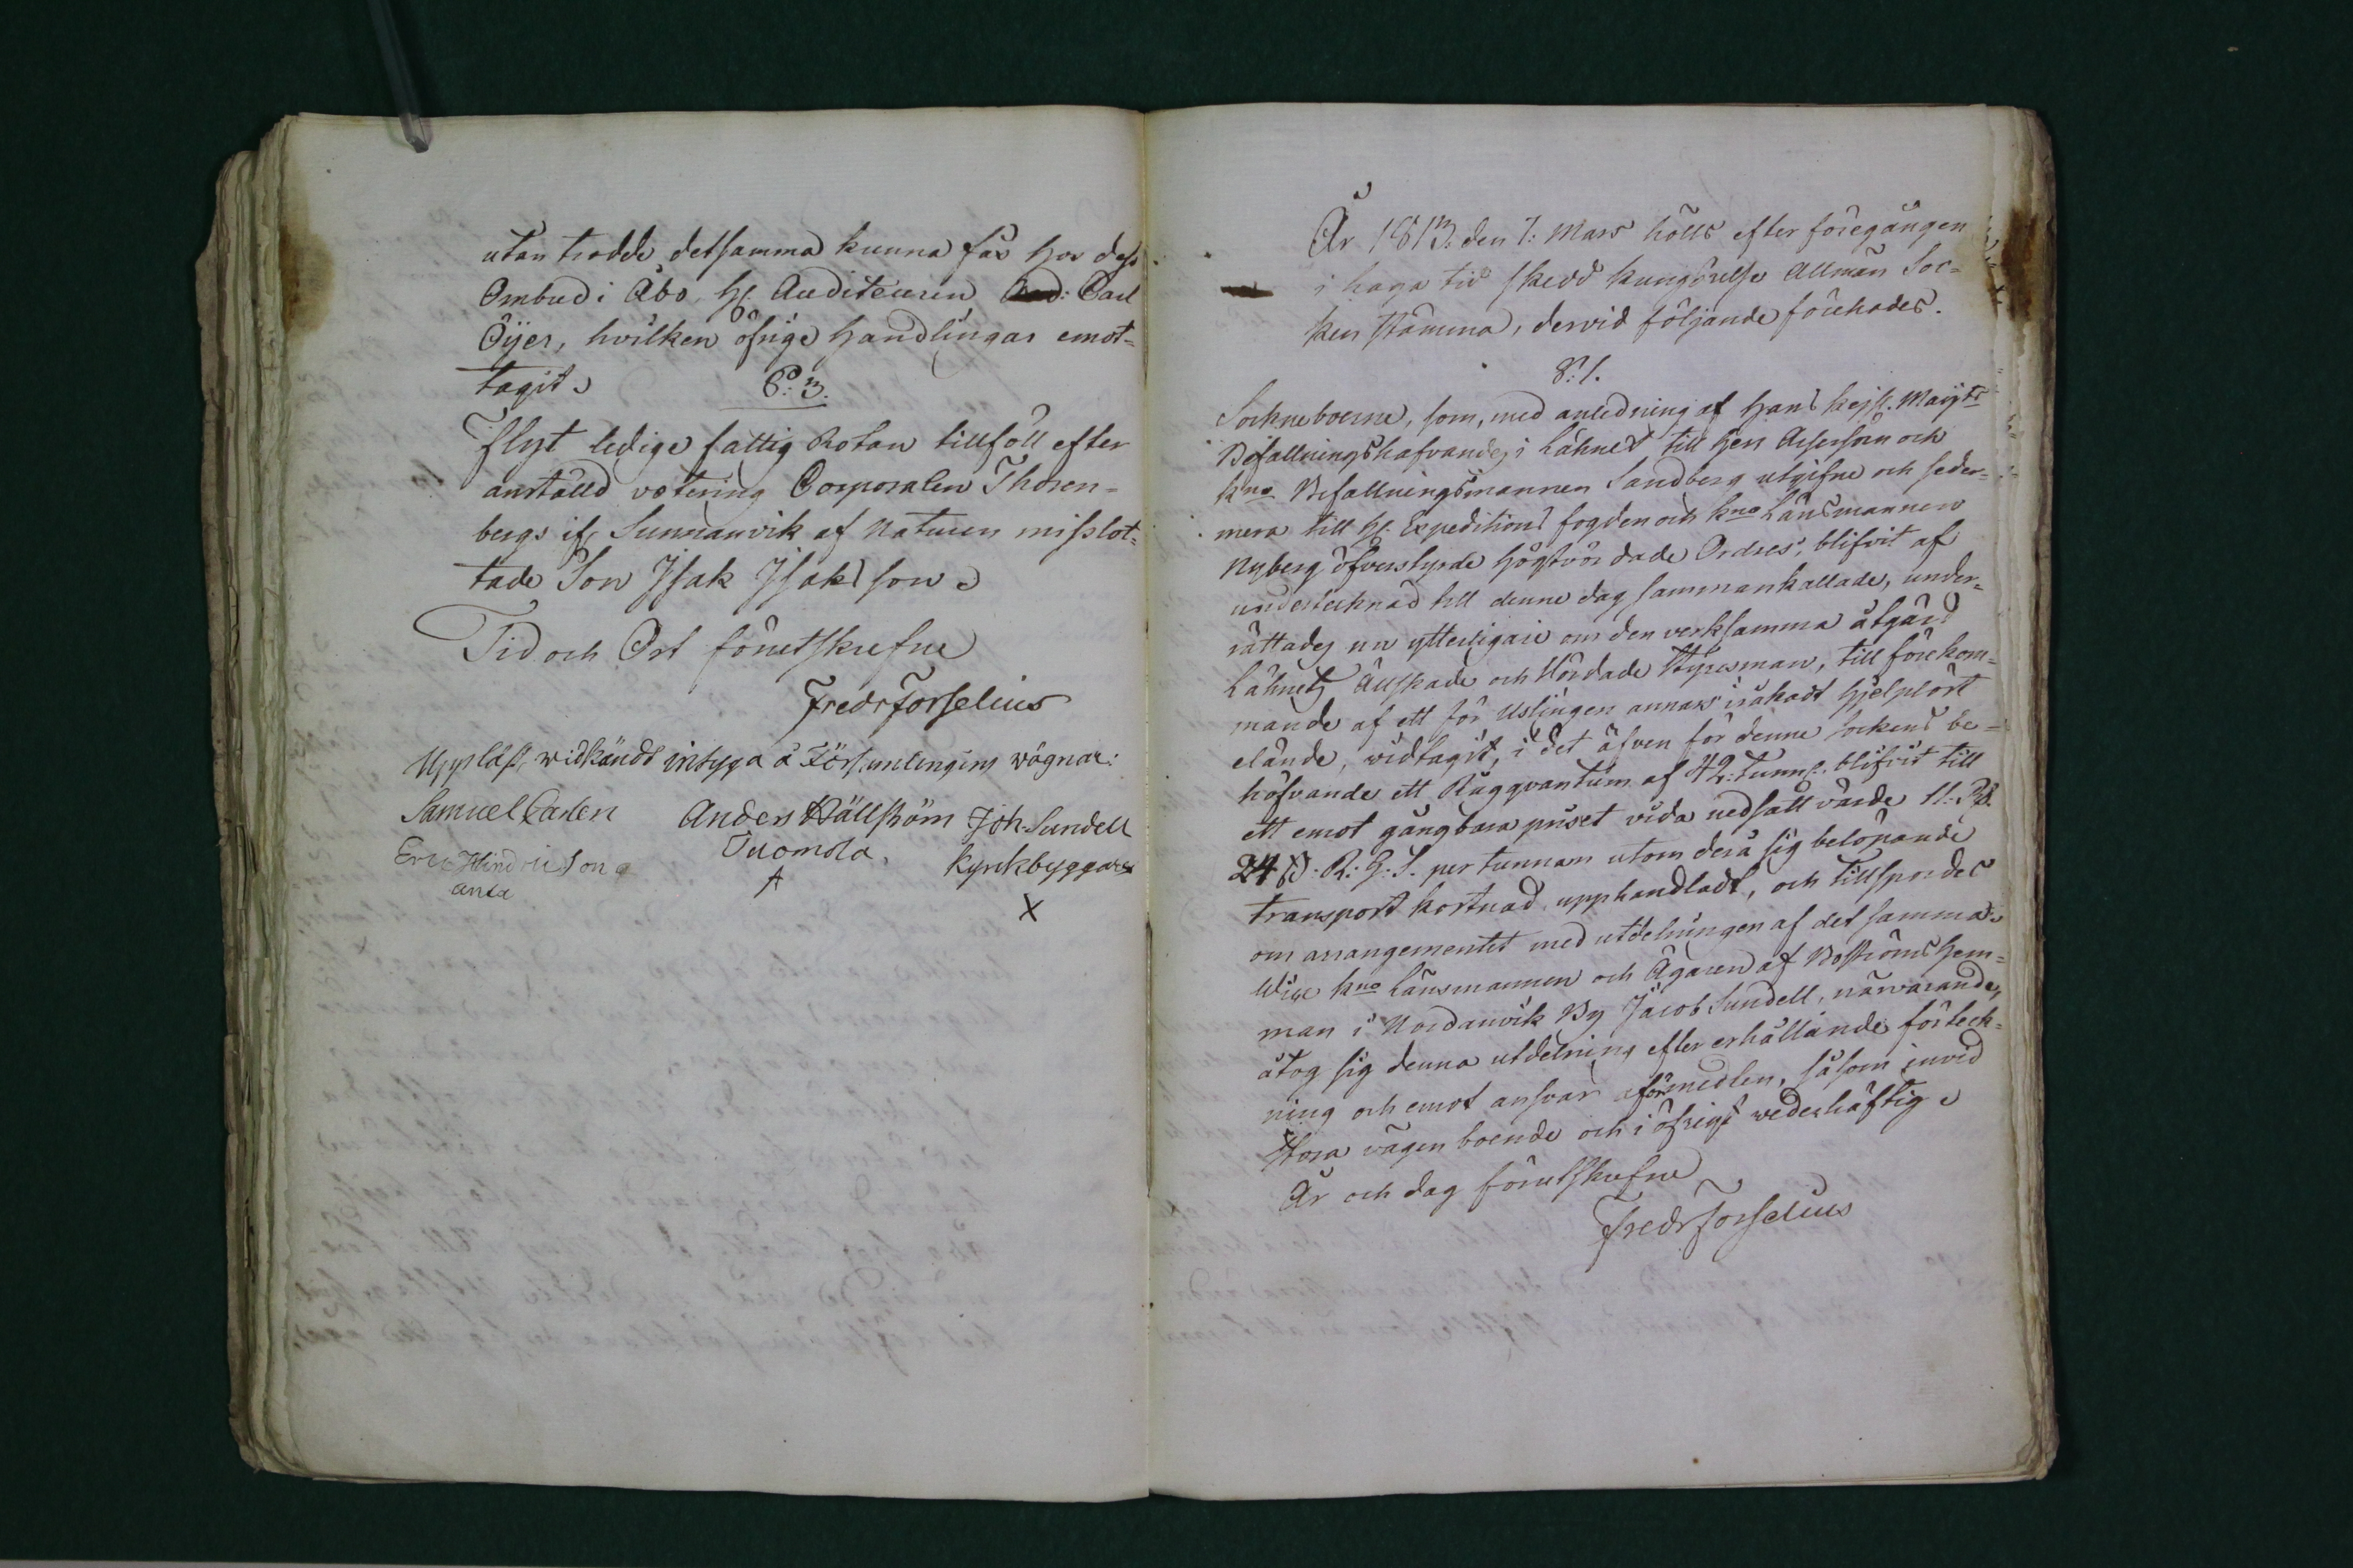 utan trodde detsamma kunna fås hos dess
Ombud i Åbo, H. Auditeuren Carl
Öijer, hvilken öfrige Handlingar emot-
tagit.
§: 3.
ledige fattig Rotan tillföll efter
anställd votering Corporalen Thoren-
bergs ifr. Sunnanvik af Naturen misslot-
tade Son Isak Isaksson.
Tid och Ort förutskrefne
Fredr Forselius
Uppläst, widkändt intyga å Församlingens wägnar:
Samuel Carlen Anders Hällström Joh. Sundell
Eric Hindricsson Tuomola. kyrkbyggare
anta
X
År 1813. den 7: Mars hölls efter föregången
i laga tid skedd kungörelse Allmän Soc-
ken stämma, dervid följande förehades.
§: 1.
Sockneboerne, som, med anledning af Hans Kejs. Maijts
Befallningshafvandes i Lähnet till Herr Assessorn och
kno Befallningsmannen Sandberg utgifne och seder-
mera till H. Expeditions fogden och kno Länsmannen
Nyberg öfverstyrde högtvördade Ordres, blifvit af
undertecknad till denne dag sammankallade, under-
rättades nu ytterligare om den verksamma åtgärd
Lähnets Älskade och Vördade Styresman, till förekom-
mande af ett för Uslingen annars orsakadt hjelplöst
elände, widtagit, i det äfven för denne Sockens be-
höfvande ett Rågqvantum af 42. Tunnr. blifvit till
ett emot gångbara priset vida nedsatt värde 11. Rd.
24 s. R: G: S. per tunnan utom derå sig belöpande
transport kostnad upphandladt, och tillspordes
om arrangementet med utdelningen af det samma.
Wice kno Länsmannen och Ägaren af Boströms Hem-
man i Nordanvik By Jacob Sundell, närvarande,
åtog sig denna utdelning efter erhållande förteck-
ning och emot ansvar för medlen, såsom invid
stora vägen boende och i öfrigt wederhäftig.
År och dag förutskrefne
Fredr Forselius